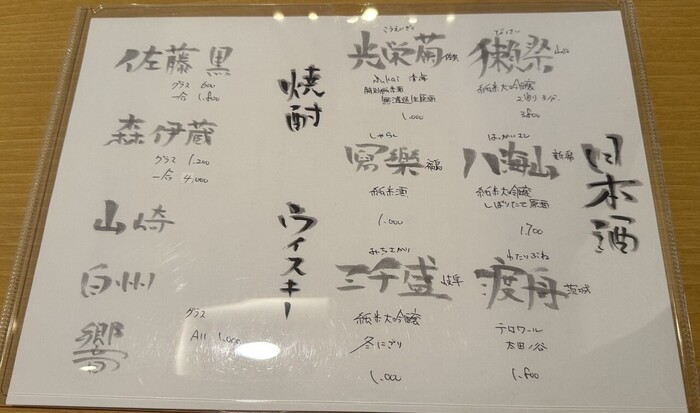 日本酒
だっさい
獺祭 山口
純米大吟醸
2割3分
3,800
はっかいさん
八海山 新潟
純米大吟醸
しぼりたて原酒
1,700
わたりぶね
渡舟 茨城
テロワール
太田ノ谷
1,800
こうえいぎく
光栄菊 佐賀
無濾過生原酒
1,000
しゃらく
冩樂 福島
純米酒
1,000
みちさかり
三千盛 岐阜
純米大吟醸
冬にごり
1,000
焼酎
佐藤 黒
グラス 600
一合 1,800
森伊蔵
グラス 1,200
一合 4,000
ウィスキー
山崎
白州
響
グラス
All 1,000